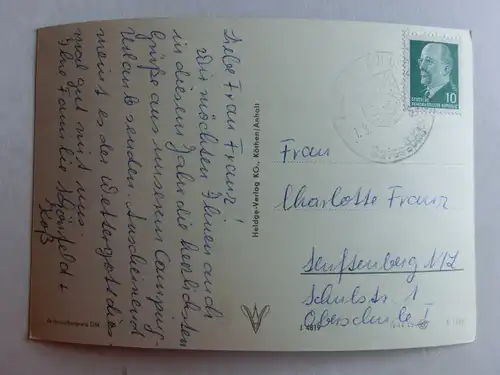 Liebe Frau Franz!
Wir möchten Ihnen auch
in diesem Jahr die herzlichsten
Grüße aus unserem Camping-
Urlaub senden. Anscheinend
meint es der Wettergott dies-
mal gut mit uns
Ihre Familie
Heldge-Verlag KG., Köthen/Anhalt
10
DEUTSCHE
DEMOKRATISCHE REPUBLIK
Frau
Charlotte Franz
Senftenberg N/L
Schulstr. 1
Oberschule I